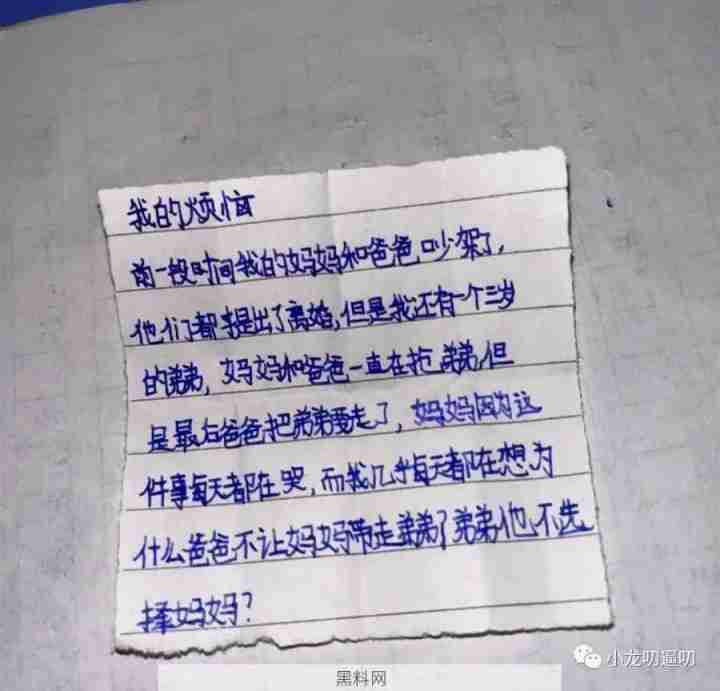 我的烦恼
前一段时间我的妈妈和爸爸吵架了,
他们都提出了离婚,但是我还有一个三岁
的弟弟,妈妈和爸爸一直在抢弟弟,但
是最后爸爸把弟弟要走了,妈妈因为这
件事每天都在哭,而我几乎每天都在想为
什么爸爸不让妈妈带走弟弟了弟弟他不选
择妈妈?
小龙叨逼叨
黑料网